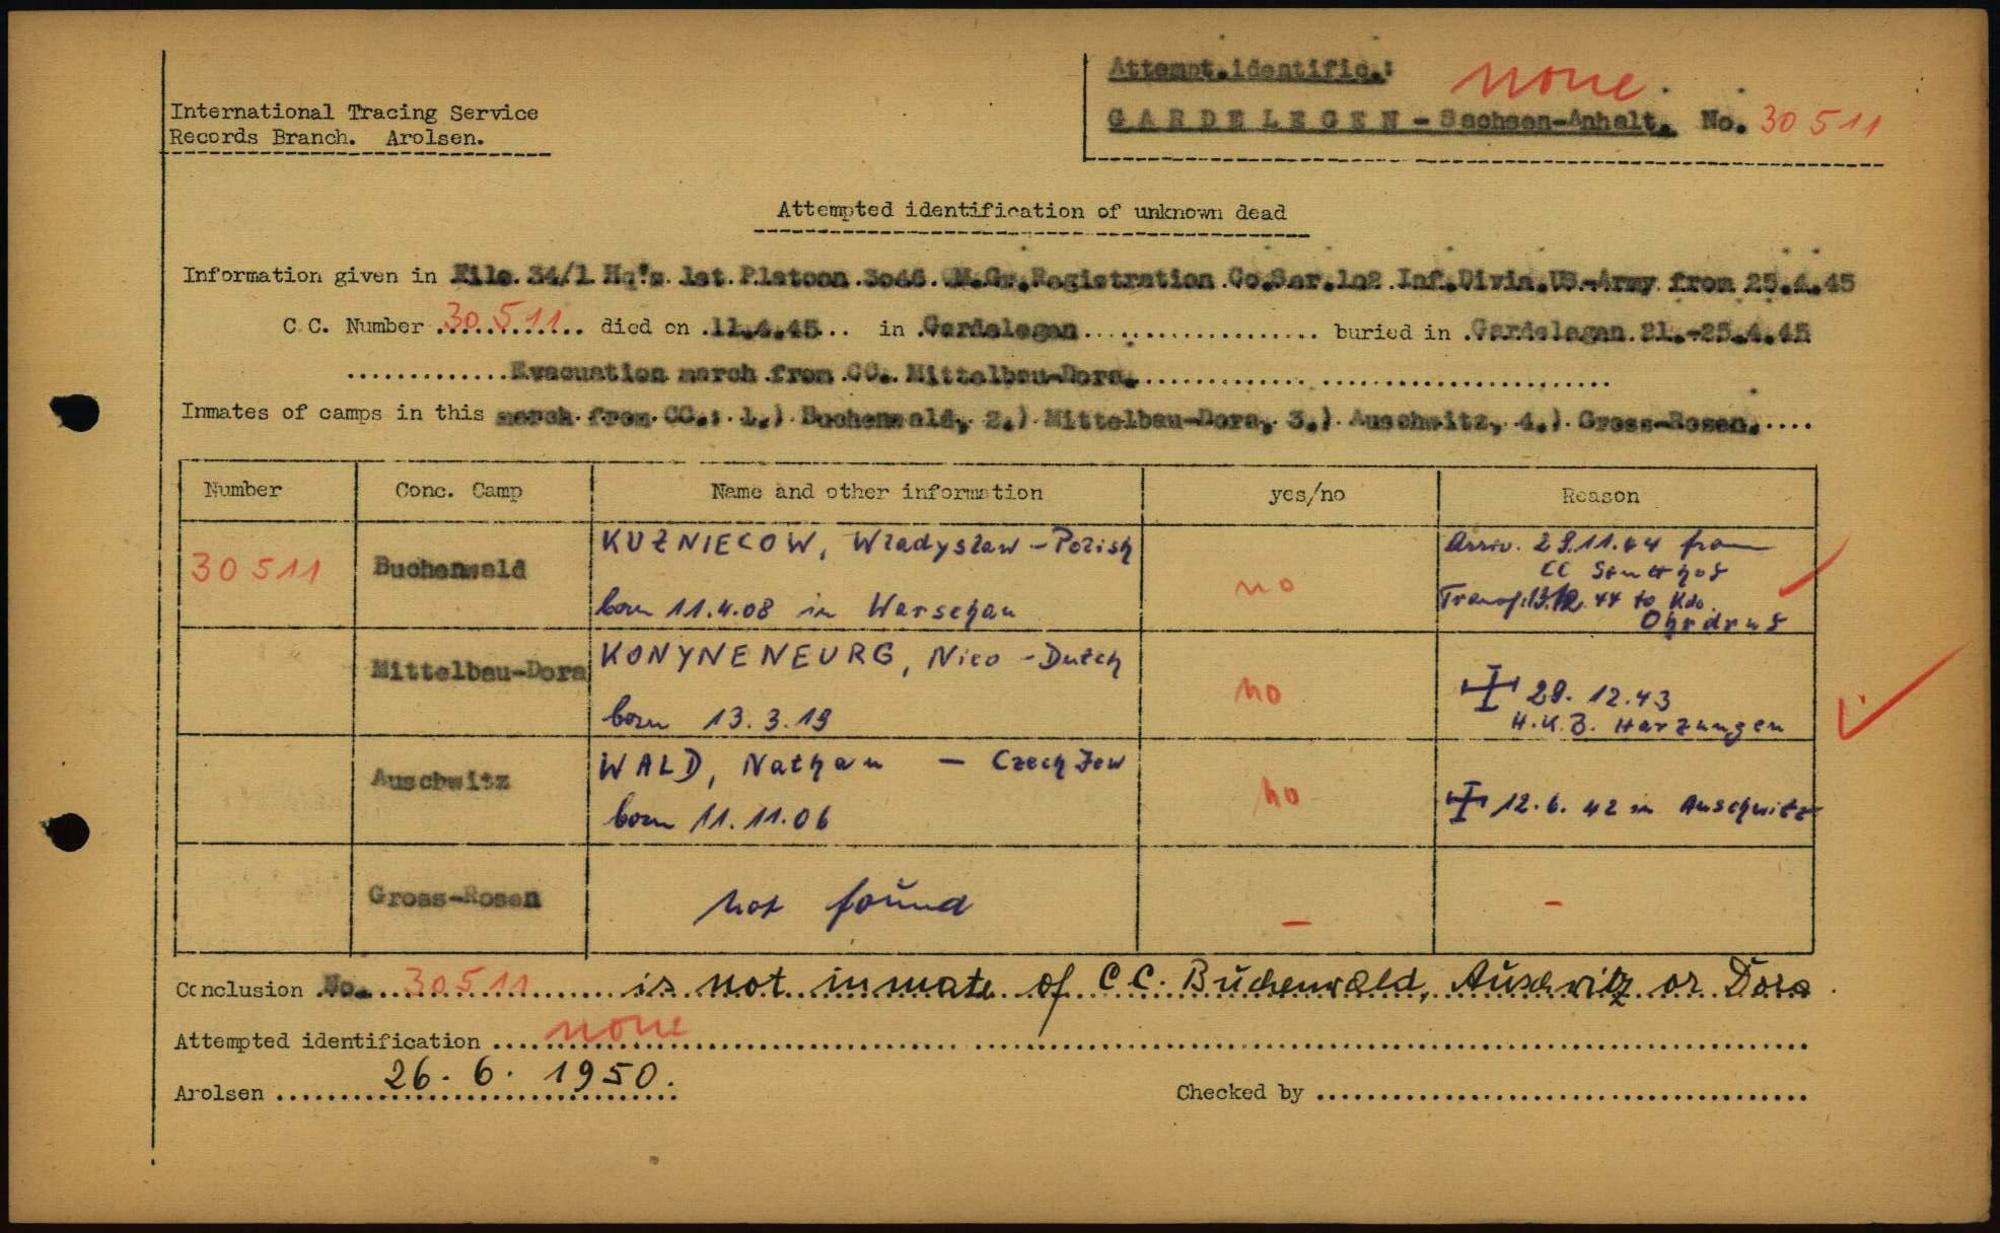 International Tracing Service
Records Branch. Arolsen.
Attempt.identific.: none.
GARDELEGEN - Sachsen-Anhalt. No. 30511
Attempted identification of unknown dead
Information given in File 34/1 Hq's 1st Platoon 3046. QM.Gr.Registration Co.Ser.1o2 Inf.Divis.US-Army from 25.4.45
C.C. Number 30511 died on 11.4.45 in Gardelegen buried in Gardelegen 21.-25.4.45
Evacuation march from CC. Mittelbau-Dora.
Inmates of camps in this march from CC.: 1.) Buchenwald, 2.) Mittelbau-Dora, 3.) Auschwitz, 4.) Gross-Rosen.
Number Conc. Camp Name and other information yes/no Reason
30511 Buchenwald KUZNIECOW, Wladyslaw - Polish
born 11.4.08 in Warschau
no
Arriv. 29.11.44 from
CC Stutthof
Transf. 13.12.44 to Kdo.
Ohrdruf
Mittelbau-Dora KONYNENEURG, Nico - Dutch
born 13.3.19
no
29.12.43
H.K.B. Harzungen
Auschwitz WALD, Nathan - Czech Jew
born 11.11.06
no
12.6.42 in Auschwitz
Gross-Rosen not found - -
Conclusion No. 30511 is not inmate of C.C. Buchenwald, Auschwitz or Dora.
Attempted identification none
Arolsen 26.6.1950.
Checked by